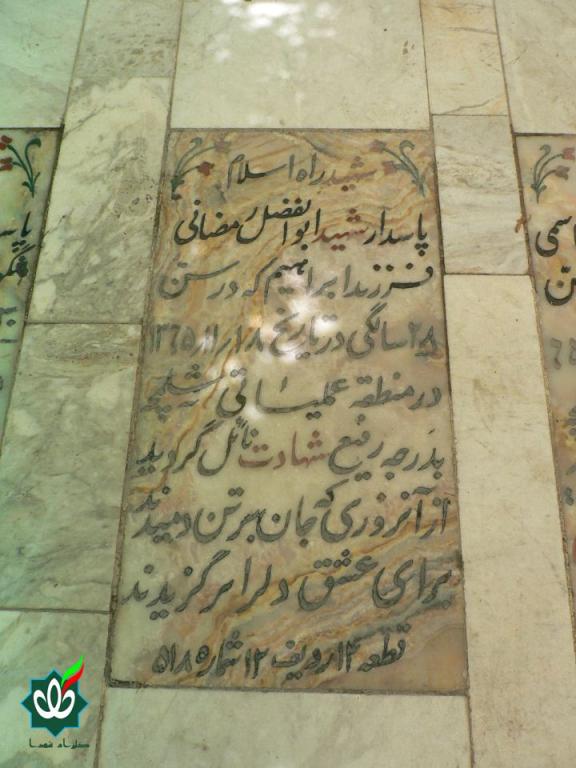 شهید راه اسلام
پاسدار شهید ابوالفضل رمضانی
فرزند ابراهیم که در سن
۲۸ سالگی در تاریخ ۱۸ر۱۱ر۱۳۶۵
در منطقه عملیاتی شلمچه
بدرجه رفیع شهادت نائل گردید
از آنروزی که جان بر تن دمیدند
برای عشق دلرا برگزیدند
قطعه ۱۴ ردیف ۱۲ شماره ۵۱۸
گلزار شهدا